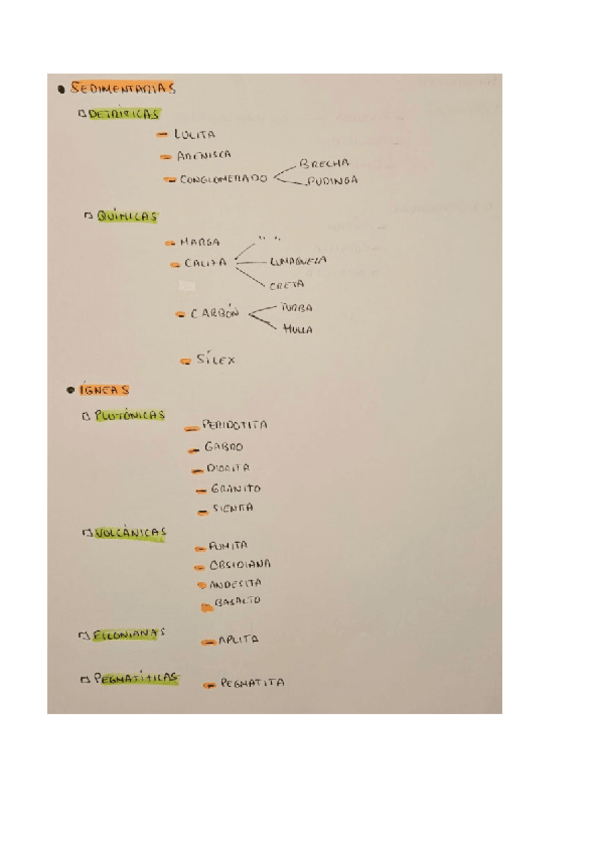 SEDIMENTARIAS
DETRÍTICAS
LULITA
ARENISCA
CONGLOMERADO
BRECHA
PUDINGA
QUÍMICAS
MARGA
CALIZA
" "
LUMAQUELA
CRETA
CARBÓN
TURBA
HULLA
SÍLEX
ÍGNEAS
PLUTÓNICAS
PERIDOTITA
GABRO
DIORITA
GRANITO
SIENITA
VOLCÁNICAS
PUMITA
OBSIDIANA
ANDESITA
BASALTO
FILONIANAS
APLITA
PEGMATÍTICAS
PEGMATITA